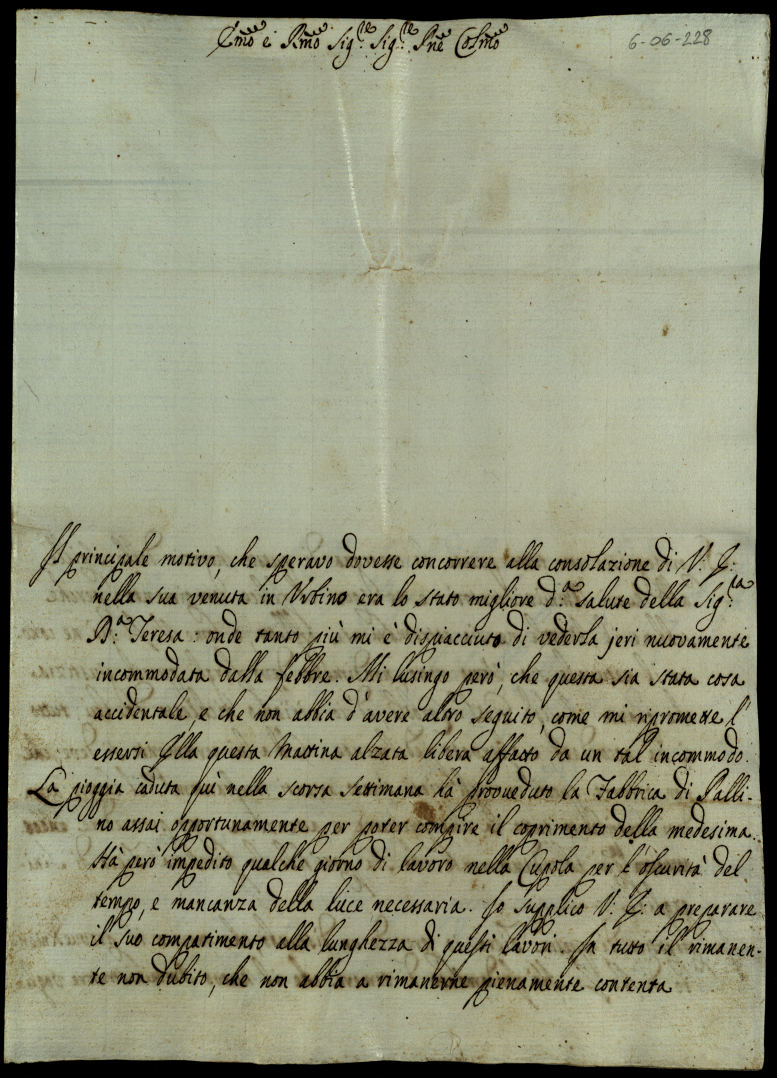 Emo e Rmo Sig.re Sig.re Pne Colmo
6-06-228
Il principale motivo, che speravo dovesse concorrere alla consolazione di V. E:
nella sua venuta in Urbino era lo stato migliore d.a salute della Sig.ra
D.a Teresa: onde tanto più mi è dispiacciuto di vederla jeri nuovamente
incommodata dalla febbre. Mi lusingo però, che questa sia stata cosa
accidentale, e che non abbia d'avere altro seguito, come mi ripromette l'
essersi Ella questa Mattina alzata libera affatto da un tal incommodo.
La pioggia caduta quì nella scorsa Settimana hà proveduto la Fabbrica di Palli-
no assai opportunamente per poter compire il coprimento della medesima.
Hà però impedito qualche giorno di lavoro nella Cupola per l'oscurità del
tempo, e mancanza della luce necessaria. Io supplico V. E: a preparare
il suo compatimento alla lunghezza di questi lavori. In tutto il rimanen-
te non dubito, che non abbia a rimanerne pienamente contenta